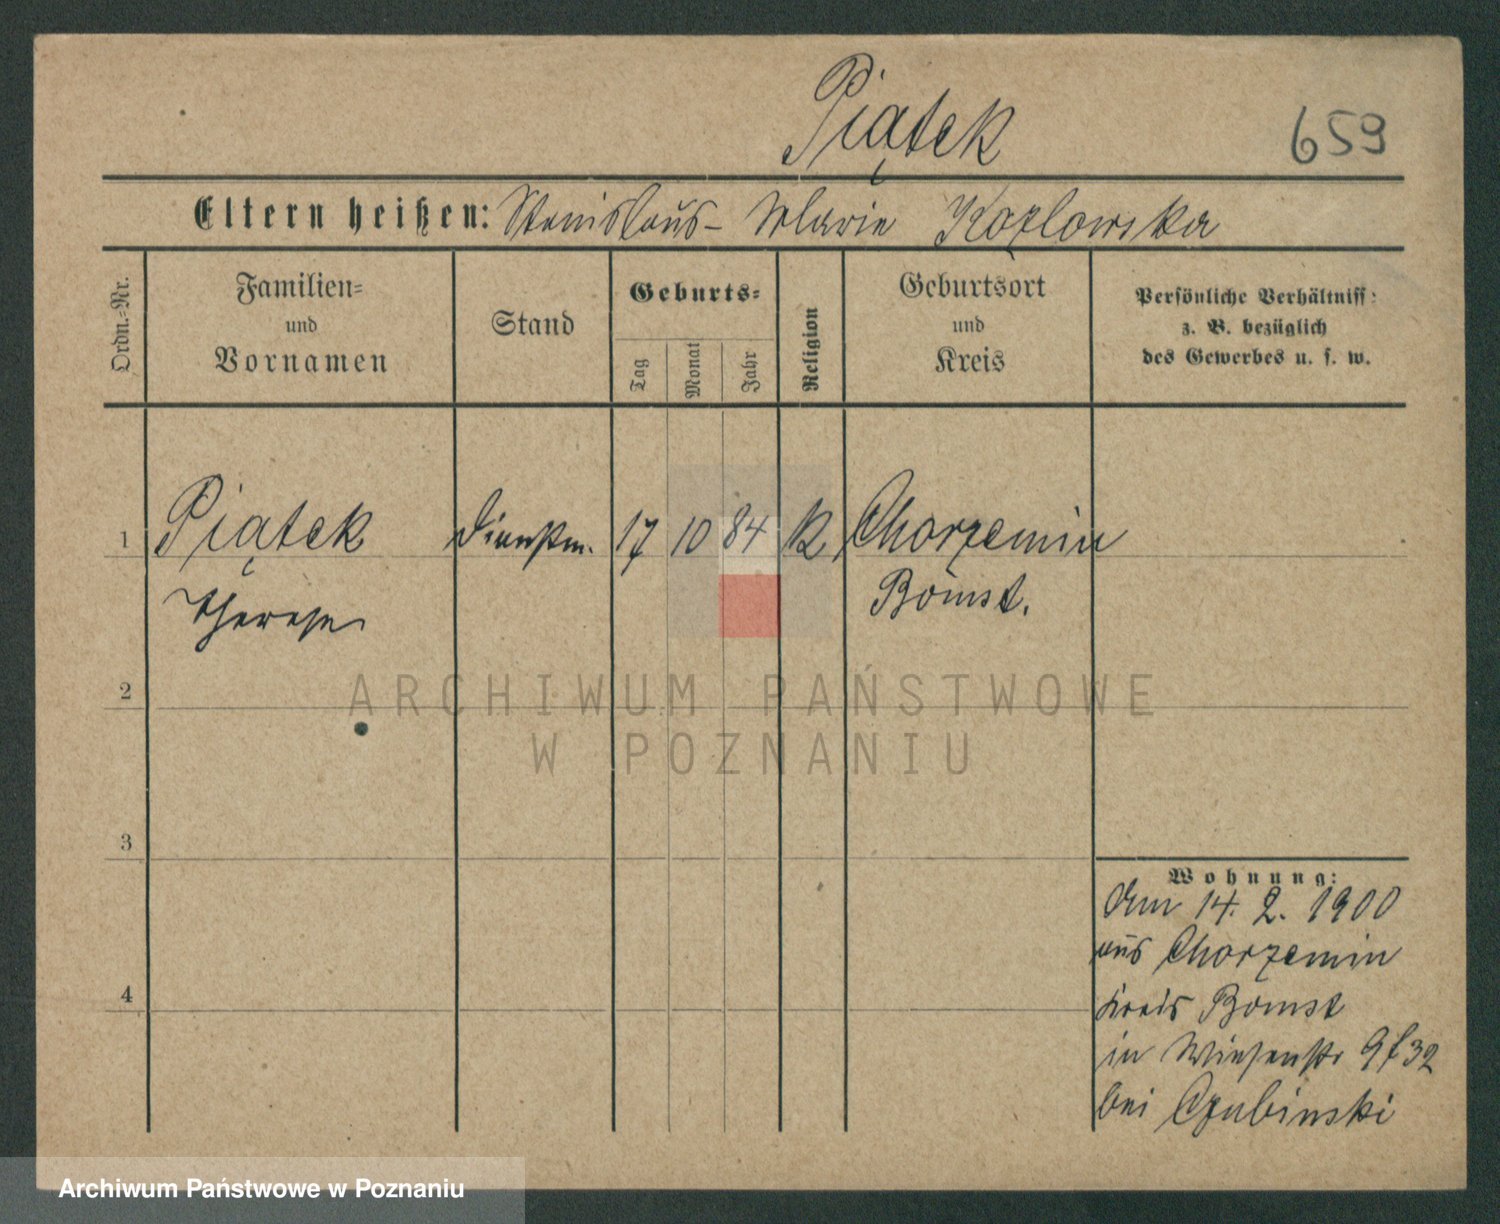 Piątek
659
Eltern heißen: Stanislaus - Marie Kozlowska
Ordn.=Nr.
Familien=
und
Vornamen
Stand
Geburts=
Tag
Monat
Jahr
Religion
Geburtsort
und
Kreis
Persönliche Verhältniss:
z. B. bezüglich
des Gewerbes u. s. w.
1 Piątek Dienstm. 17 10 84 K Chorzemin
Therese Bomst.
ARCHIWUM PAŃSTWOWE
W POZNANIU
2
3
4
Wohnung:
Am 14. 2. 1900
aus Chorzemin
Kreis Bomst
in Wiesenstr 9 f 32
bei Czubinski
Archiwum Państwowe w Poznaniu